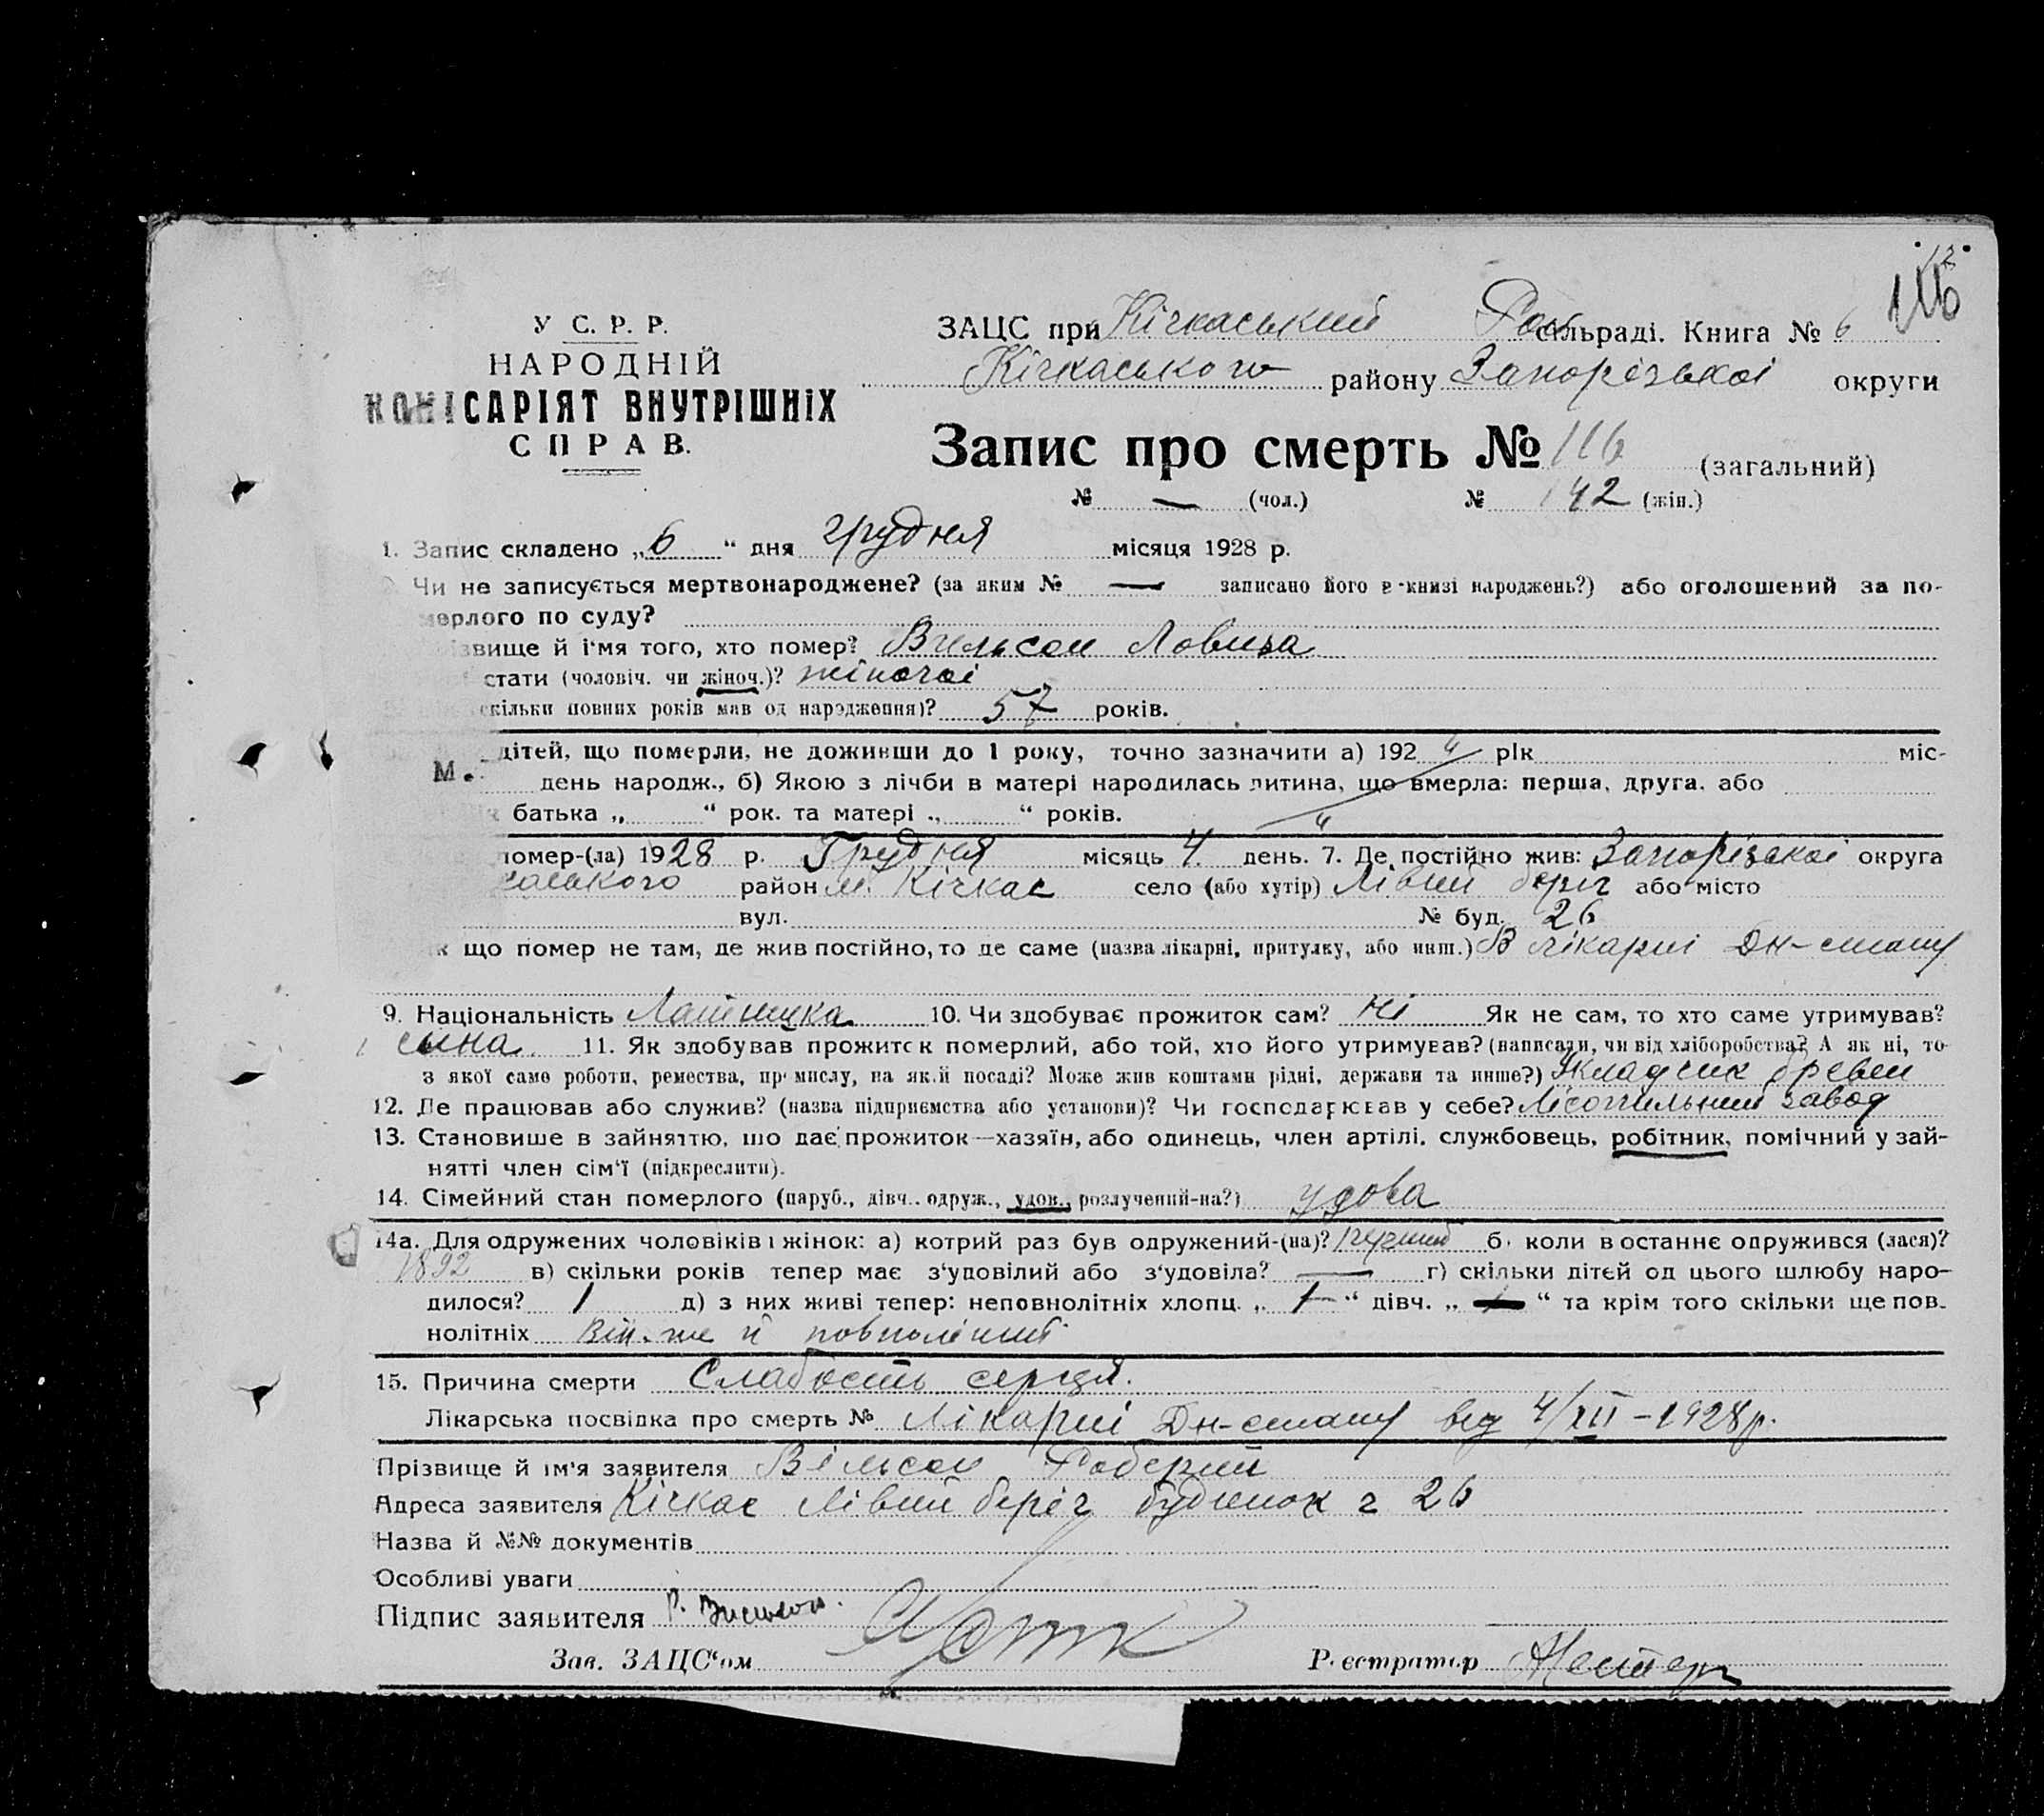 У С. Р. Р.
НАРОДНІЙ
КОМІСАРІЯТ ВНУТРІШНІХ
СПРАВ.
116
ЗАЦС при Кічкаський сільраді. Книга № 6
Кічкаського району Запорізької округи
Запис про смерть № 116 (загальний)
№ — (чол.) № 142 (жін.)
1. Запис складено „6“ дня грудня місяця 1928 р.
Чи не записується мертвонароджене? (за яким № — записано його в книзі народжень?) або оголошений за по-
мерлого по суду?
звище й ім'я того, хто помер? Вильсон Ловиза
стати (чоловіч. чи жіноч.)? жіночої
скільки повних років мав од народження)? 57 років.
дітей, що померли, не доживши до 1 року, точно зазначити а) 192 рік міс-
день народж., б) Якою з лічби в матері народилась дитина, що вмерла: перша, друга, або
батька „ “ рок. та матері „ “ років.
помер-(ла) 1928 р. Грудня місяць 4. день. 7. Де постійно жив: Запорізької округа
ського район м. Кічкас село (або хутір) Лівий беріг або місто
вул. № буд. 26
що помер не там, де жив постійно, то де саме (назва лікарні, притулку, або инш.) В лікарні Дн-стану
9. Національність Латишка 10. Чи здобуває прожиток сам? Ні Як не сам, то хто саме утримував?
сина. 11. Як здобував прожиток померлий, або той, хто його утримував? (написати, чи від хліборобства? А як ні, то
з якої саме роботи, ремества, промислу, на якій посаді? Може жив коштами рідні, держави та инше?) Укладсик бревен
12. Де працював або служив? (назва підприємства або установи)? Чи господарював у себе? Лісопильний завод
13. Становище в зайняттю, що дає прожиток—хазяїн, або одинець, член артілі, службовець, робітник, помічний у зай-
нятті член сім'ї (підкреслити).
14. Сімейний стан померлого (паруб., дівч.. одруж., удов., розлучений-на?) удова
14а. Для одружених чоловіків і жінок: а) котрий раз був одружений-(на)? перший б. коли в останнє одружився (лася)?
1892 в) скільки років тепер має з'удовілий або з'удовіла? — г) скільки дітей од цього шлюбу наро-
дилося? 1 д) з них живі тепер: неповнолітніх хлопц. „ “ дівч. „ “ та крім того скільки ще пов-
нолітніх Він-же й повнолітній
15. Причина смерти Слабость серця.
Лікарська посвідка про смерть № Лікарні Дн-стану від 4/XII-1928р.
Прізвище й ім'я заявителя Вільсон Роберт
Адреса заявителя Кічкас Лівий беріг будинок 26
Назва й №№ документів
Особливі уваги
Підпис заявителя Р. Вильсон.
Зав. ЗАЦС'ом Реєстратор